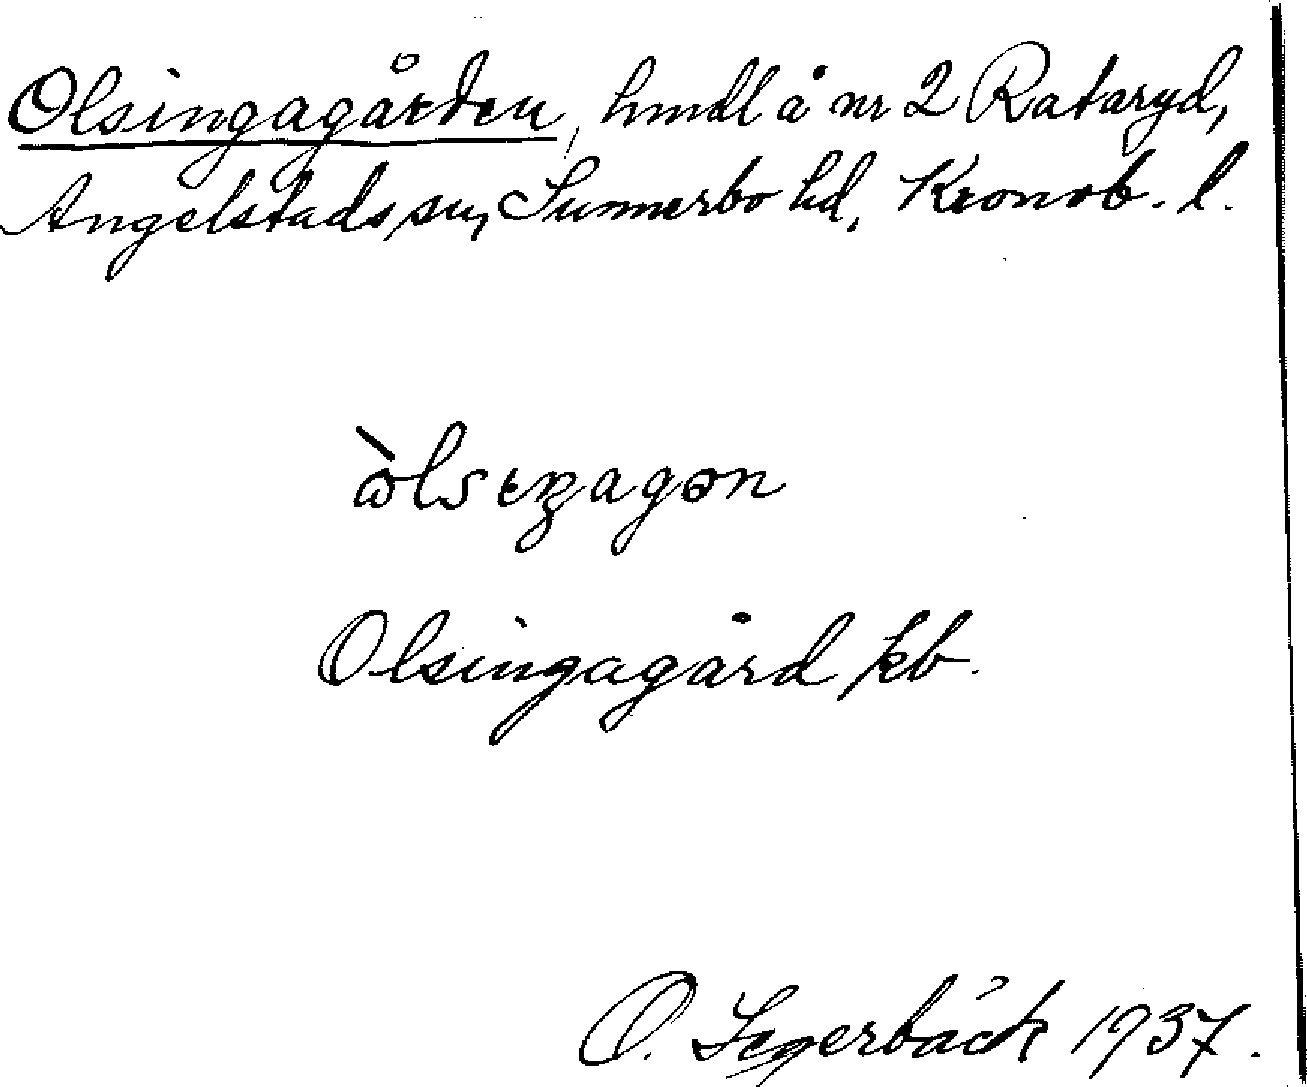 Olsingagården, hmdl å nr 2 Rataryd,
Angelstads sn, Sunnerbo hd, Kronob. l.
Olsingagård kb.
O. Segerbäck 1937.